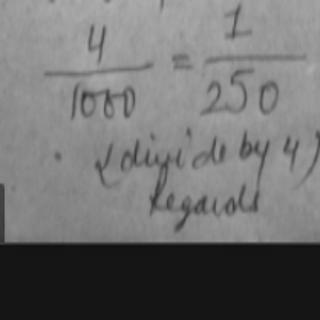 4/1000 = 1/250
(divide by 4)
Regards